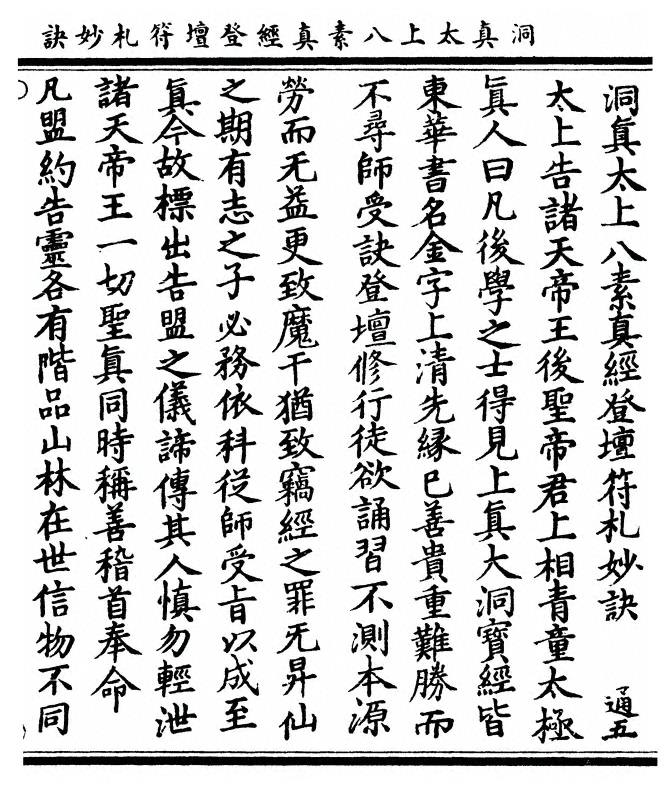 洞真太上八素真經登壇符札妙訣
洞眞太上八素真經登壇符札妙訣 通五
太上告諸天帝王後聖帝君上相青童太極
眞人曰凡後學之士得見上眞大洞寶經皆
東華書名金字上清先緣已善貴重難勝而
不尋師受訣登壇修行徒欲誦習不測本源
勞而无益更致魔干猶致竊經之罪无昇仙
之期有志之子必務依科從師受旨以成至
眞今故標出告盟之儀諦傳其人慎勿輕泄
諸天帝王一切聖眞同時稱善稽首奉命
凡盟約告靈各有階品山林在世信物不同